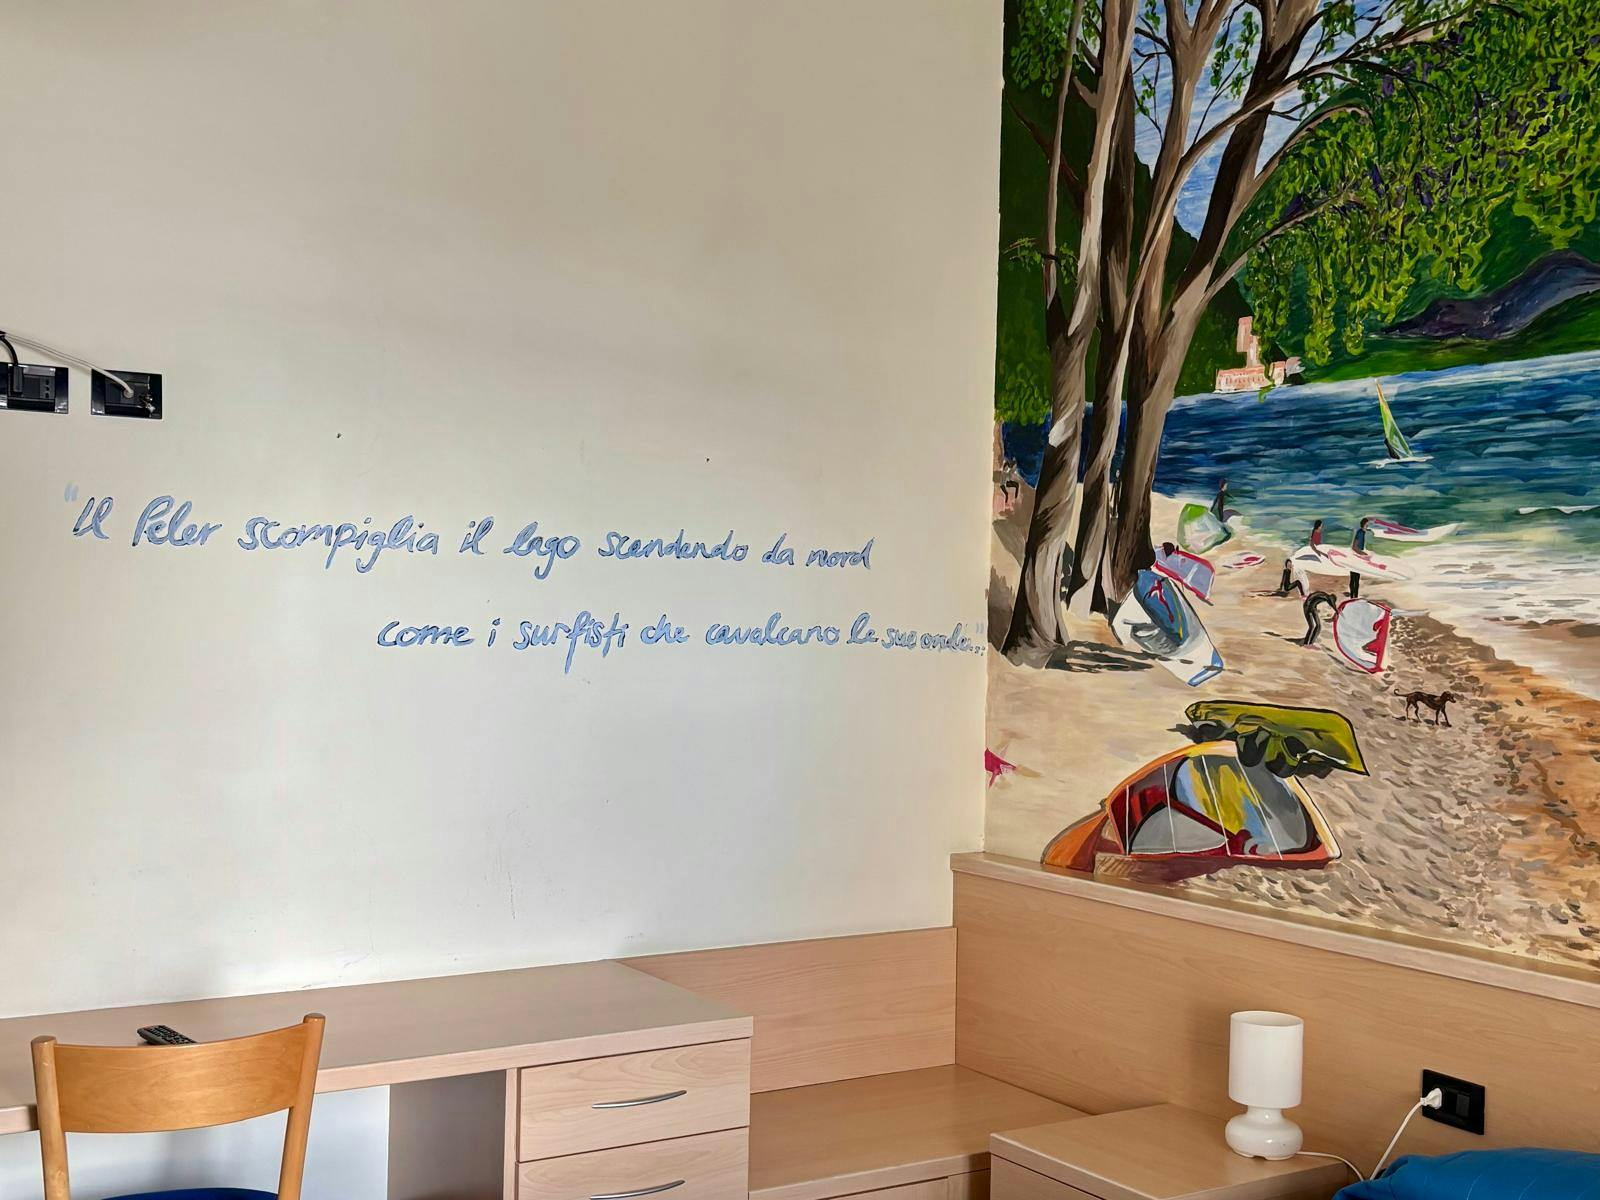 "Il Peler scompiglia il lago scendendo da nord
come i surfisti che cavalcano le sue onde..."